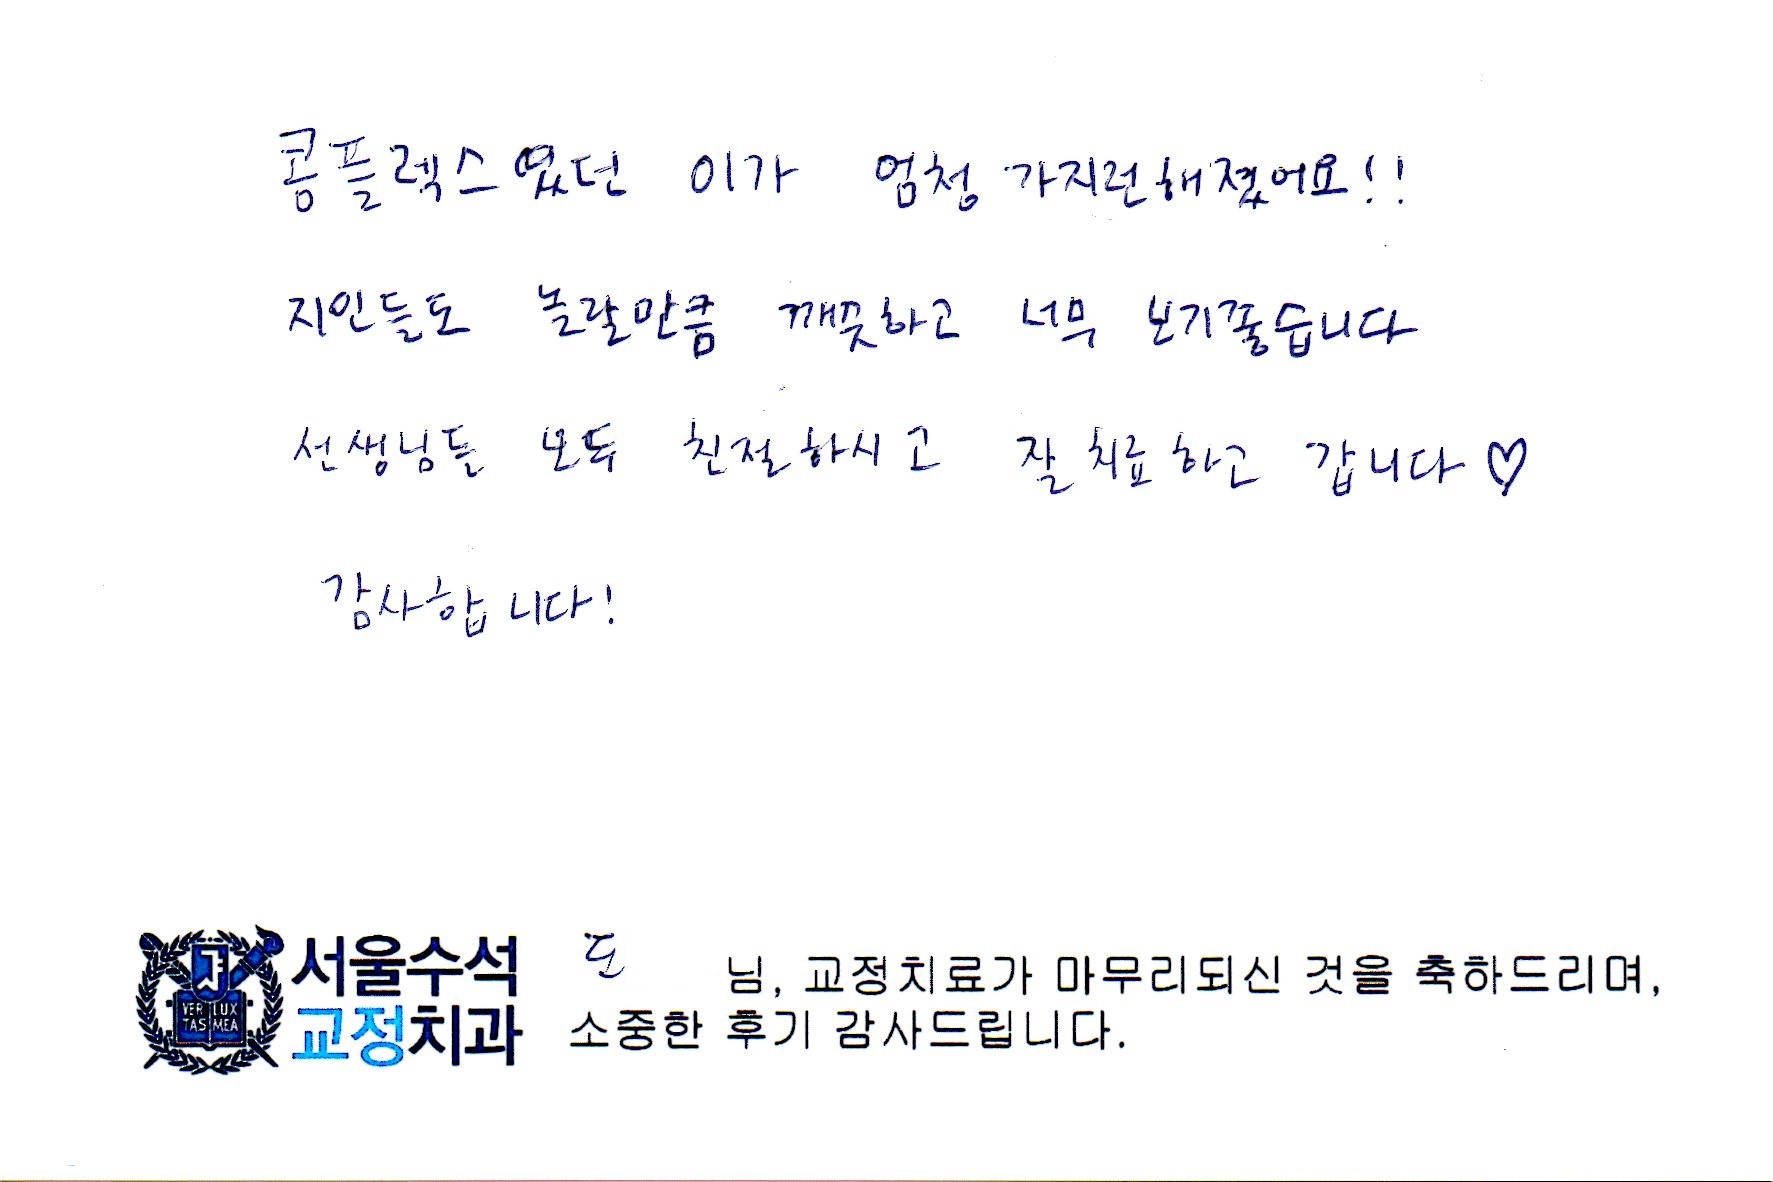 콤플렉스였던 이가 엄청 가지런해졌어요!!
지인들도 놀랄만큼 깨끗하고 너무 보기좋습니다
선생님들 모두 친절하시고 잘 치료하고 갑니다♡
감사합니다!
서울수석
교정치과
VERI LUX
TAS MEA
도 님, 교정치료가 마무리되신 것을 축하드리며,
소중한 후기 감사드립니다.